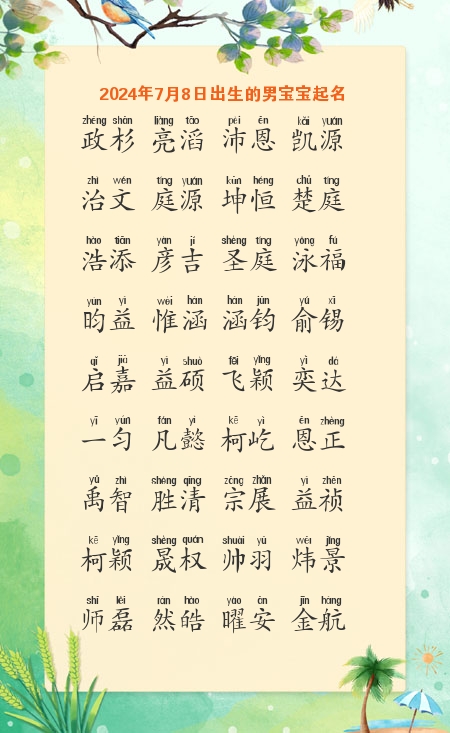 2024年7月8日出生的男宝宝起名
zhéng shān liàng tāo pèi ēn kǎi yuán
政杉 亮滔 沛恩 凯源
zhì wén tíng yuán kūn héng chǔ tíng
治文 庭源 坤恒 楚庭
hào tiān yàn jí shèng tíng yǒng fú
浩添 彦吉 圣庭 泳福
yún yì wéi hán hán jūn yú xī
昀益 惟涵 涵钧 俞锡
qǐ jiā yì shuò fēi yǐng yì dá
启嘉 益硕 飞颖 奕达
yī yún fán yì kē yì ēn zhèng
一匀 凡懿 柯屹 恩正
yǔ zhì shèng qīng zōng zhǎn yì zhēn
禹智 胜清 宗展 益祯
kē yǐng shèng quán shuài yǔ wěi jǐng
柯颖 晟权 帅羽 炜景
shī lěi rán hào yào ān jīn háng
师磊 然皓 曜安 金航